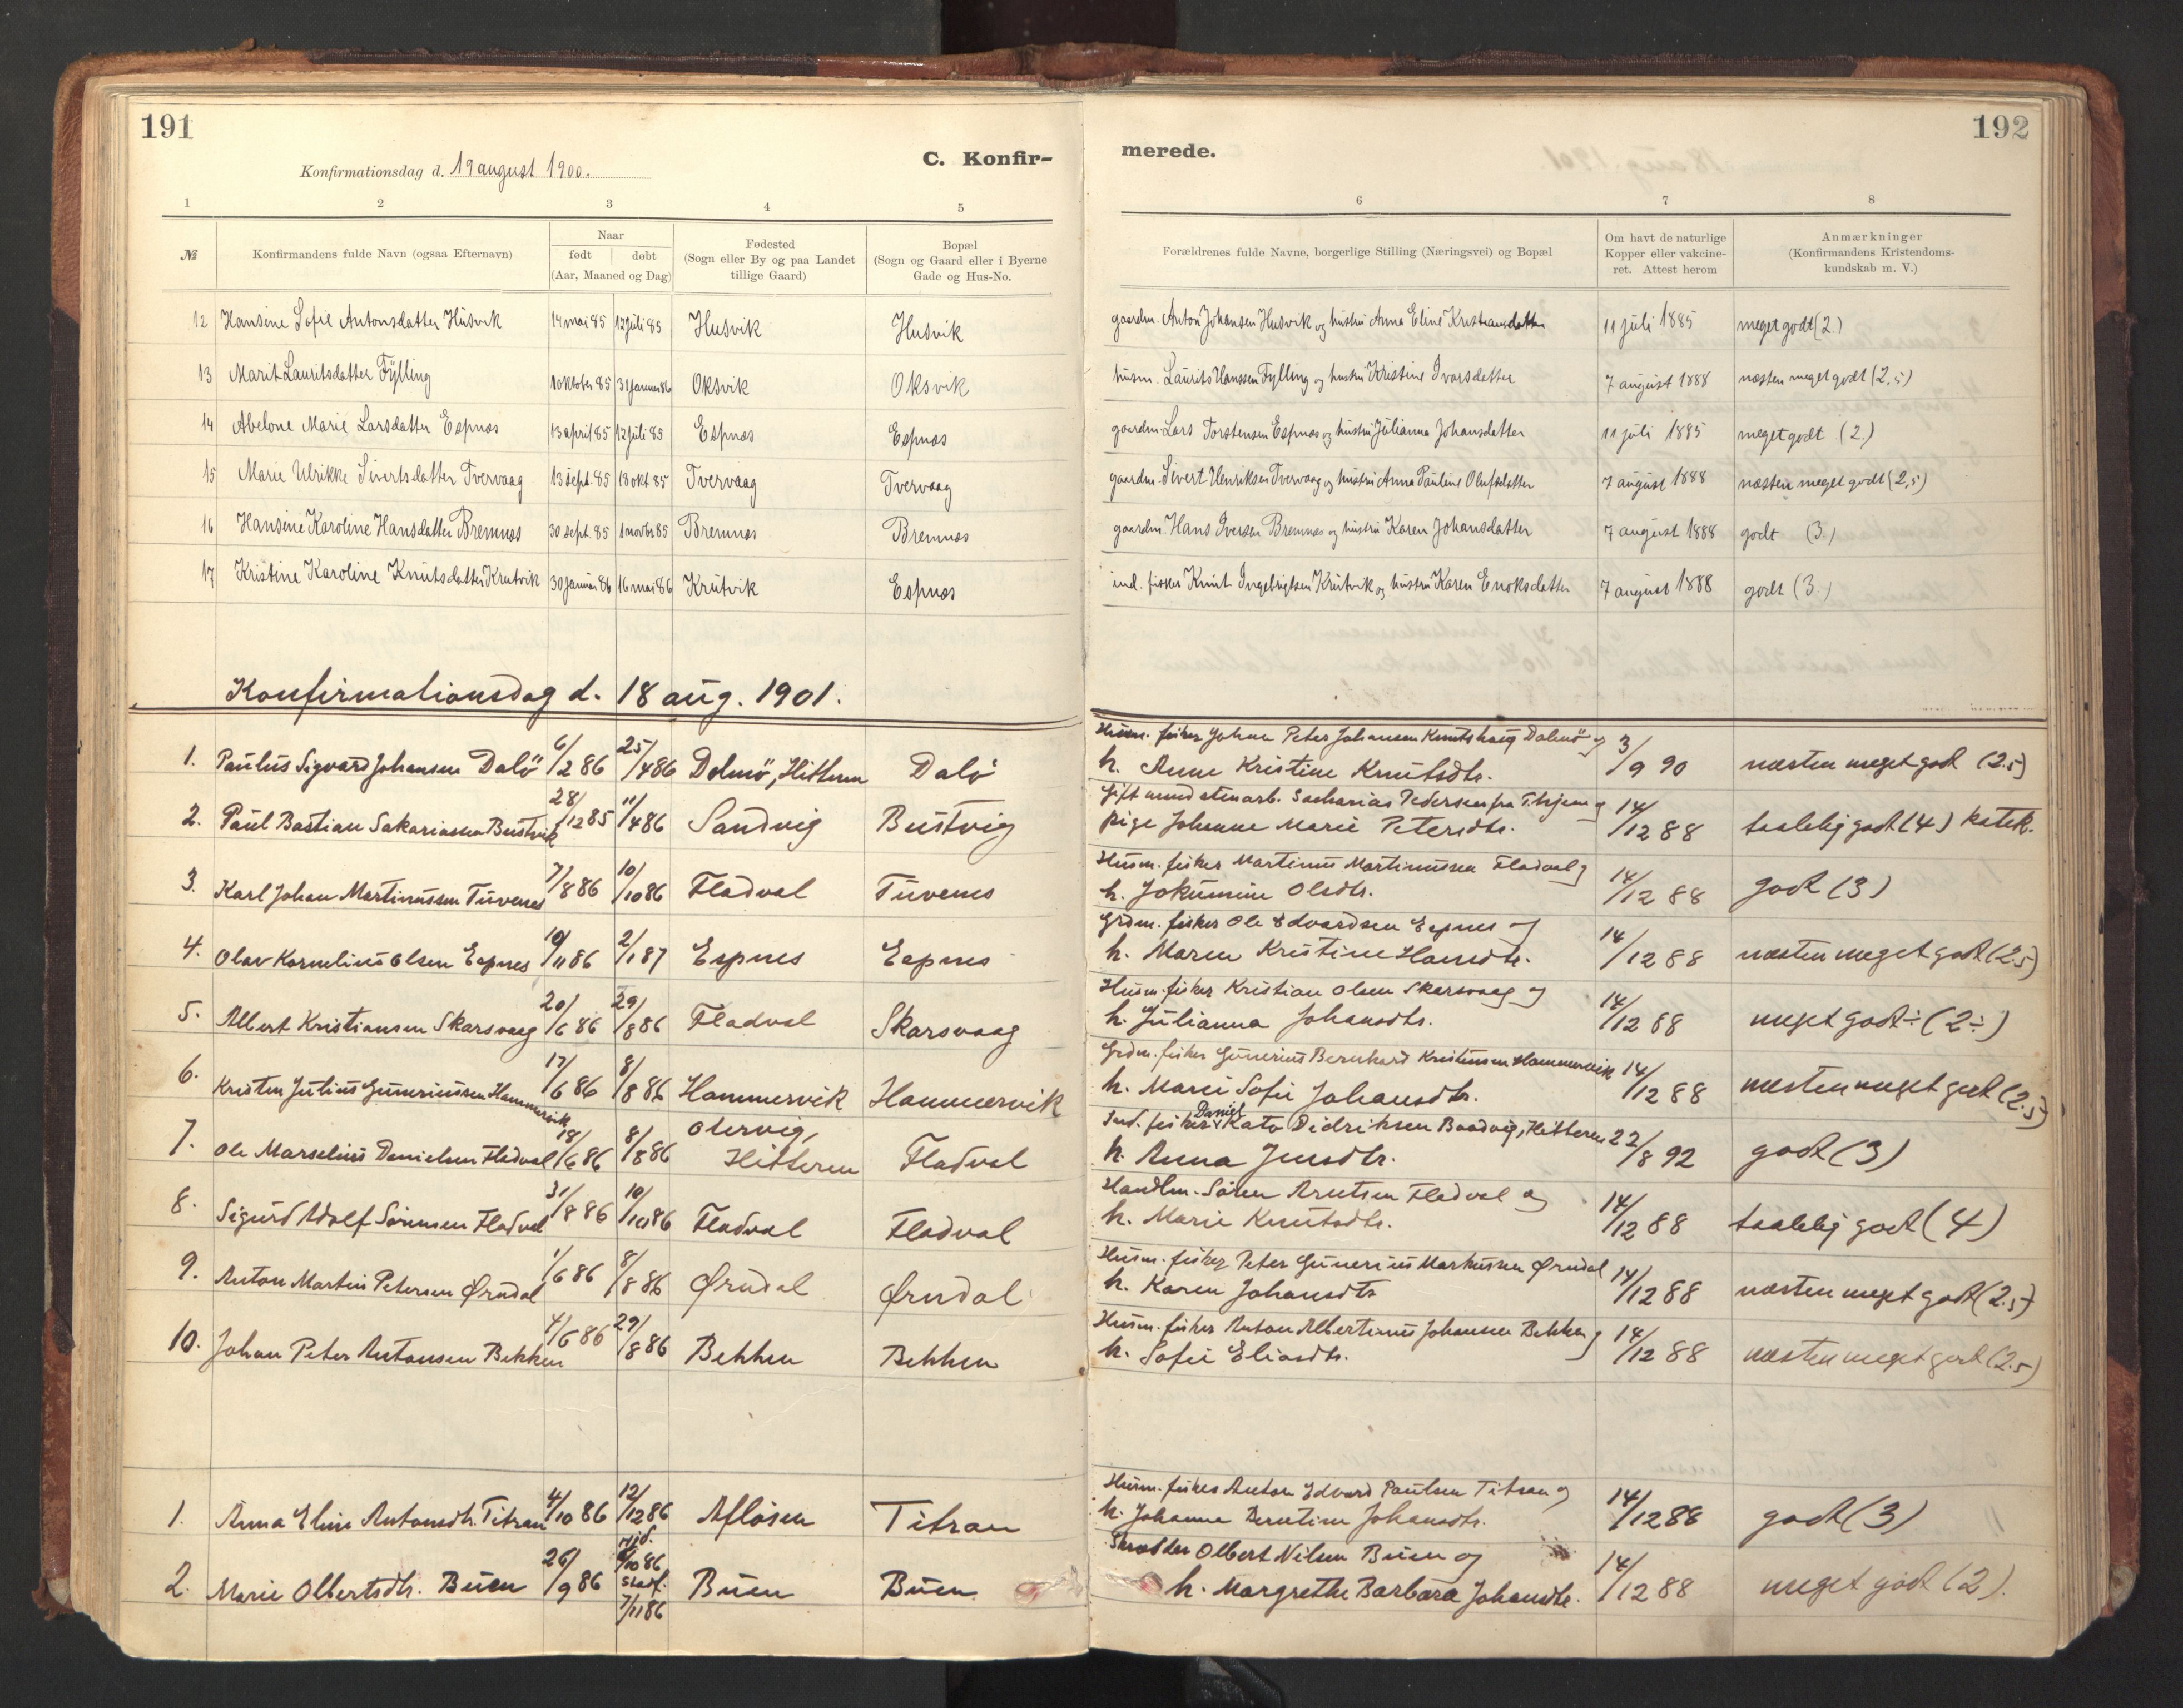 191
192
C. Konfir-
merede.
Konfirmationsdag d. 19 august 1900.
1 2 3 4 5 6 7 8
№ Konfirmandens fulde Navn (ogsaa Efternavn) Naar født døbt (Aar, Maaned og Dag) Fødested (Sogn eller By og paa Landet tillige Gaard) Bopæl (Sogn og Gaard eller i Byerne Gade og Hus-No. Forældrenes fulde Navne, borgerlige Stilling (Næringsvei) og Bopæl Om havt de naturlige Kopper eller vakcineret. Attest herom Anmærkninger (Konfirmandens Kristendomskundskab m. V.)
12 Hansine Sofie Antonsdatter Husvik 14 mai 85 12 juli 85 Husvik Husvik gaardm. Anton Johansen Husvik og hustru Anna Eline Kristiansdatter 11 juli 1885 meget godt (2.)
13 Marit Lauritsdatter Fylling 1 oktober 85 31 januar 86 Oksvik Oksvik husm. Laurits Hanssen Fylling og hustru Kristine Ivarsdatter 7 august 1888 næsten meget godt (2,5)
14 Abelone Marie Larsdatter Espnæs 13 april 85 12 juli 85 Espnæs Espnæs gaardm. Lars Torstensen Espnæs og hustru Julianna Johansdatter 11 juli 1885 meget godt (2.)
15 Marie Ulrikke Sivertsdatter Tvervaag 13 sept. 85 18 okt 85 Tvervaag Tvervaag gaardm. Sivert Henriksen Tvervaag og hustru Anna Pauline Olufsdatter 7 august 1888 næsten meget godt (2,5)
16 Hansine Karoline Hansdatter Bremnæs 30 sept. 85 1 novbr 85 Bremnæs Bremnæs gaardm. Hans Iversen Bremnæs og hustru Karen Johansdatter 7 august 1888 godt (3.)
17 Kristine Karoline Knutsdatter Krutvik 30 januar 86 16 mai 86 Krutvik Espnæs ind. fisker Knut Ingebrigtsen Krutvik og hustru Karen Enoksdatter 7 august 1888 godt (3.)
Konfirmationsdag d. 18 aug. 1901.
1. Paulus Sigvard Johansen Dalö 6/2 86 25/4 86 Dolmö, Hitteren Dalö Husm. fisker Johan Peter Johansen Knutshaug Dolmö og
h. Anne Kristine Knutsdtr. 3/9 90 næsten meget godt (2.5)
2. Paul Bastian Sakariassen Bustvik 28/12 85 11/4 86 Sandvig Bustvig Gift mand stenarb. Sacharias Pedersen fra T.hjem og
pige Johanne Marie Petersdtr. 14/12 88 taalelig godt (4) katek.
3. Karl Johan Martinussen Tuvenes 7/8 86 10/10 86 Fladval Tuvenes Husm. fisker Martinus Martinussen Fladval og
h. Jokumine Olsdtr. 14/12 88 godt (3)
4. Olav Kornelius Olsen Espnes 10/11 86 2/1 87 Espnes Espnes Grdm. fisker Ole Edvardsen Espnes og
h. Maren Kristine Hansdtr. 14/12 88 næsten meget godt (2.5)
5. Albert Kristiansen Skarsvaag 20/6 86 29/8 86 Fladval Skarsvaag Husm. fisker Kristian Olsen Skarsvaag og
h. Julianna Johansdtr. 14/12 88 meget godt ÷ (2÷)
6. Kristen Julius Gunerius­sen Hammervik 17/6 86 8/8 86 Hammervik Hammervik Grdm. fisker Gunerius Bernhard Kristensen Hammervik
h. Marie Sofie Johansdtr. 14/12 88 næsten meget godt (2.5)
7. Ole Marselius Danielsen Fladval 18/6 86 8/8 86 Olervig, Hitteren Fladval Ind. fisker Daniel Kato Didriksen Baadvig, Hitteren
h. Anna Jensdtr. 22/8 92 godt (3)
8. Sigurd Adolf Sörensen Fladval 31/8 86 10/10 86 Fladval Fladval Handlm. Sören Arntsen Fladval og
h. Marie Knutsdtr. 14/12 88 taalelig godt (4)
9. Anton Martin Petersen Ørndal 1/6 86 8/8 86 Ørndal Ørndal Husm. fisker Peter Gunerius Markussen Ørndal
h. Karen Johansdtr 14/12 88 næsten meget godt (2.5)
10. Johan Peter Antonsen Bekken 4/6 86 29/8 86 Bekken Bekken Husm. fisker Anton Albertinus Johansen Bekken og
h. Sofie Eliasdtr. 14/12 88 næsten meget godt (2.5)
1. Anna Eline Antonsdtr. Titran 4/10 86 12/12 86 Aflösen Titran Husm. fisker Anton Edvard Paulsen Titran og
h. Johanna Berntine Johansdtr. 14/12 88 godt (3)
2. Marie Olbertsdtr. Buen 26/9 86 hjd. /10 86 stadf. 7/11 86 Buen Buen Skrædder Olbert Nilsen Buen og
h. Margrethe Barbara Johansdtr. 14/12 88 meget godt (2).